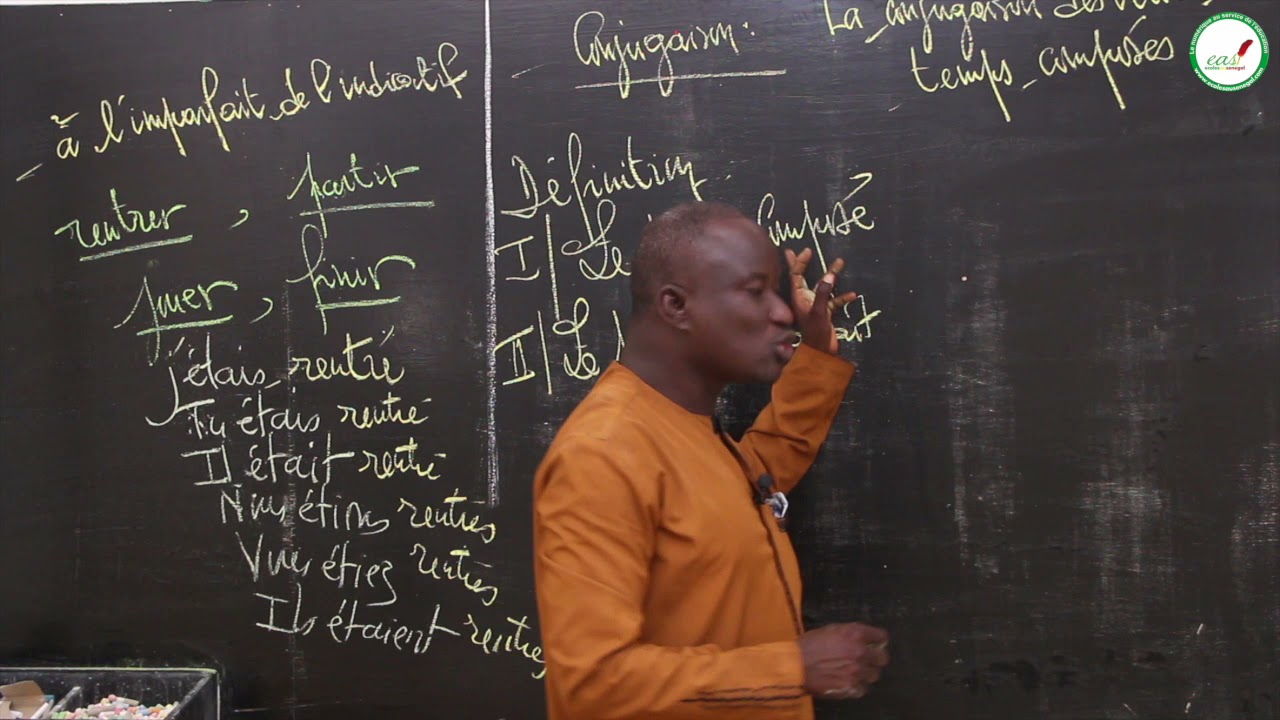 à l'imparfait de l'indicatif
rentrer, partir
jouer, finir
j'étais rentré
Tu étais rentré
Il était rentré
Nous étions rentrés
Vous étiez rentrés
Ils étaient rentrés
Conjugaison :
La conjugaison des
temps composés
Définition
I| Le composé
II| Le
Le numérique au service de l'éducation
eas
ecolesausenegal
www.ecolesausenegal.com